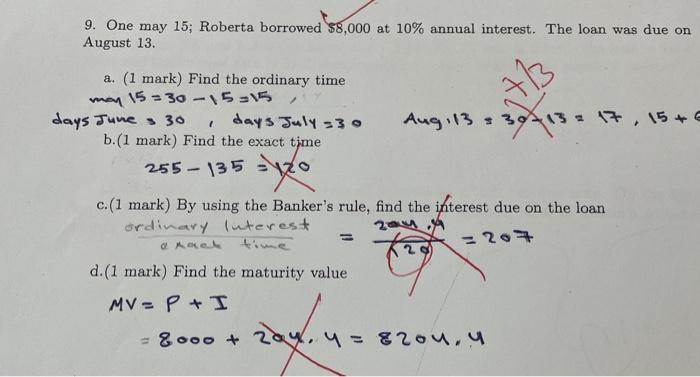 9. One may 15; Roberta borrowed $8,000 at 10% annual interest. The loan was due on
August 13.
a. (1 mark) Find the ordinary time
may 15 = 30 - 15 = 15
days June = 30 , days July = 30 Aug, 13 = 30 - 13 = 17 , 15 +
b.(1 mark) Find the exact time
255 - 135 = 120
c.(1 mark) By using the Banker's rule, find the interest due on the loan
ordinary Interest
exact time
= 204.4 / 120 = 207
d.(1 mark) Find the maturity value
MV = P + I
= 8000 + 204.4 = 8204.4